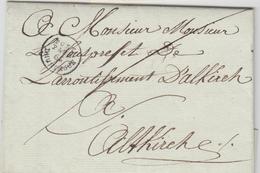 A Monsieur Monsieur
Le Sousprefet De
Larrondissement D'altkirch
A
Altkirch